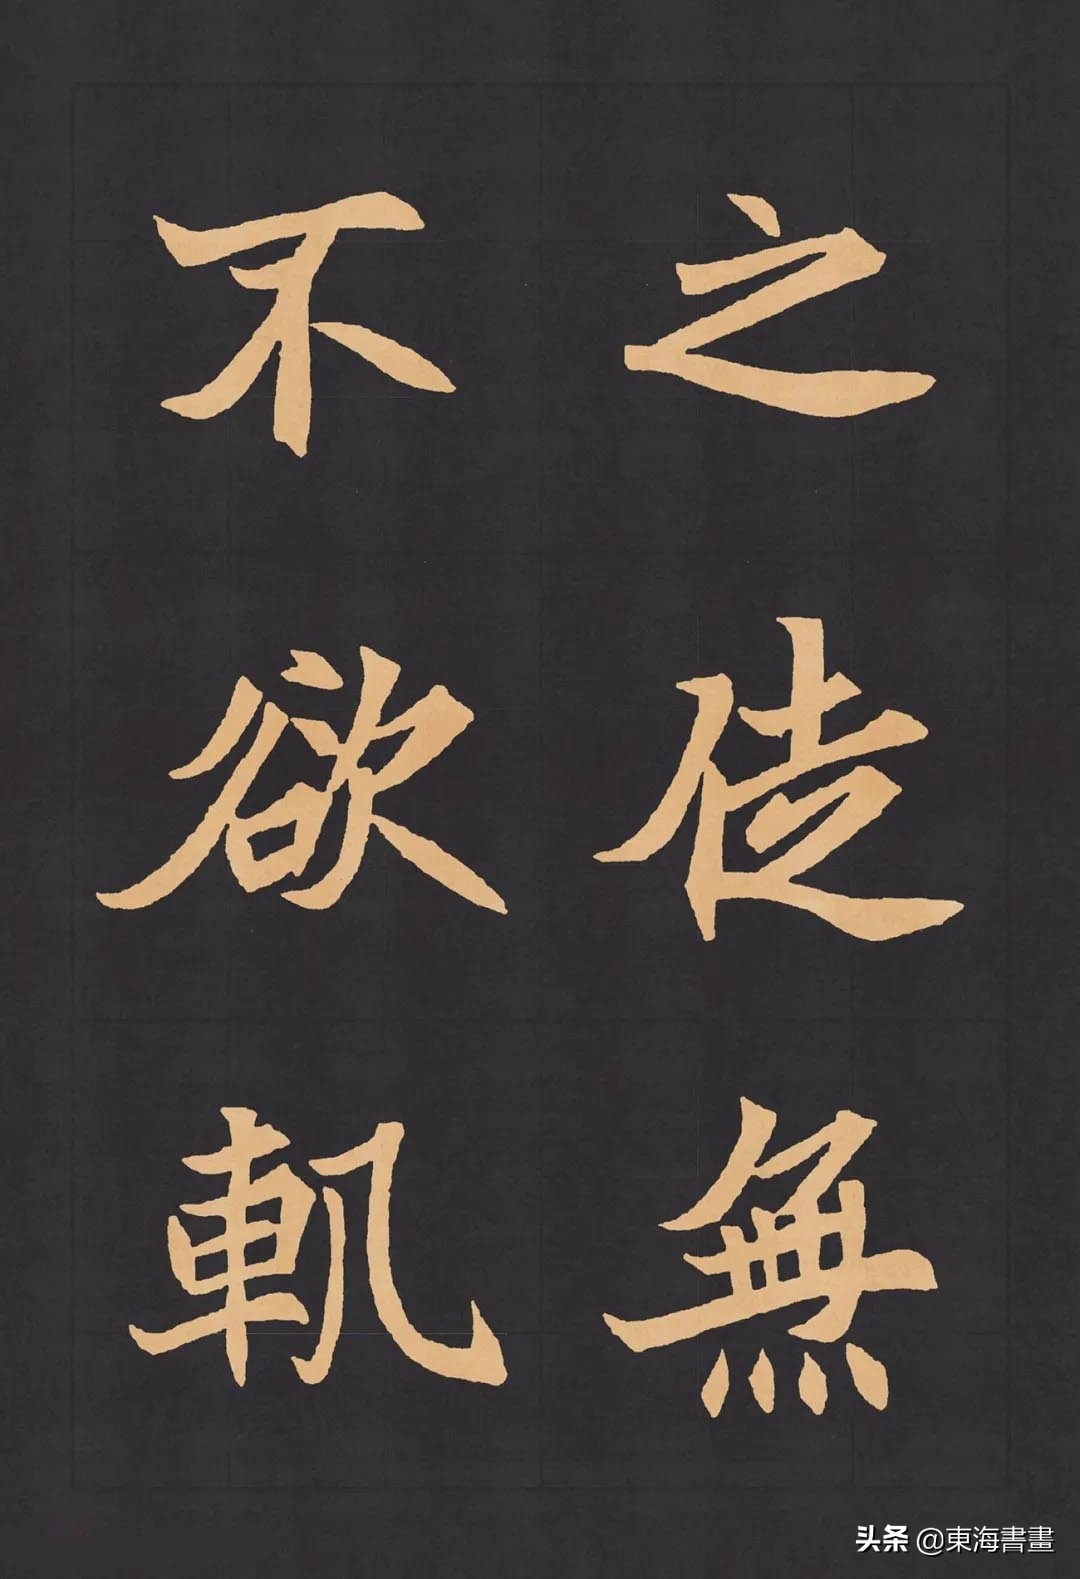 之徒無
不欲軌
头条 @東海書畫